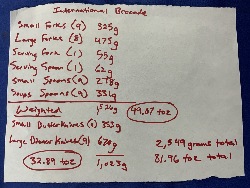 International Brocade
Small Forks (9) 325g
Large Forks (8) 475g
Serving Fork (1) 55g
Serving Spoon (1) 62g
Small Spoons (9) 278g
Soup Spoons (9) 331g
Weighted 1,526 49.07 toz
Small Butter Knives 353g
Large Dinner Knives (9) 670g 2,549 grams total
32.89 toz 1,023g 81.96 toz total